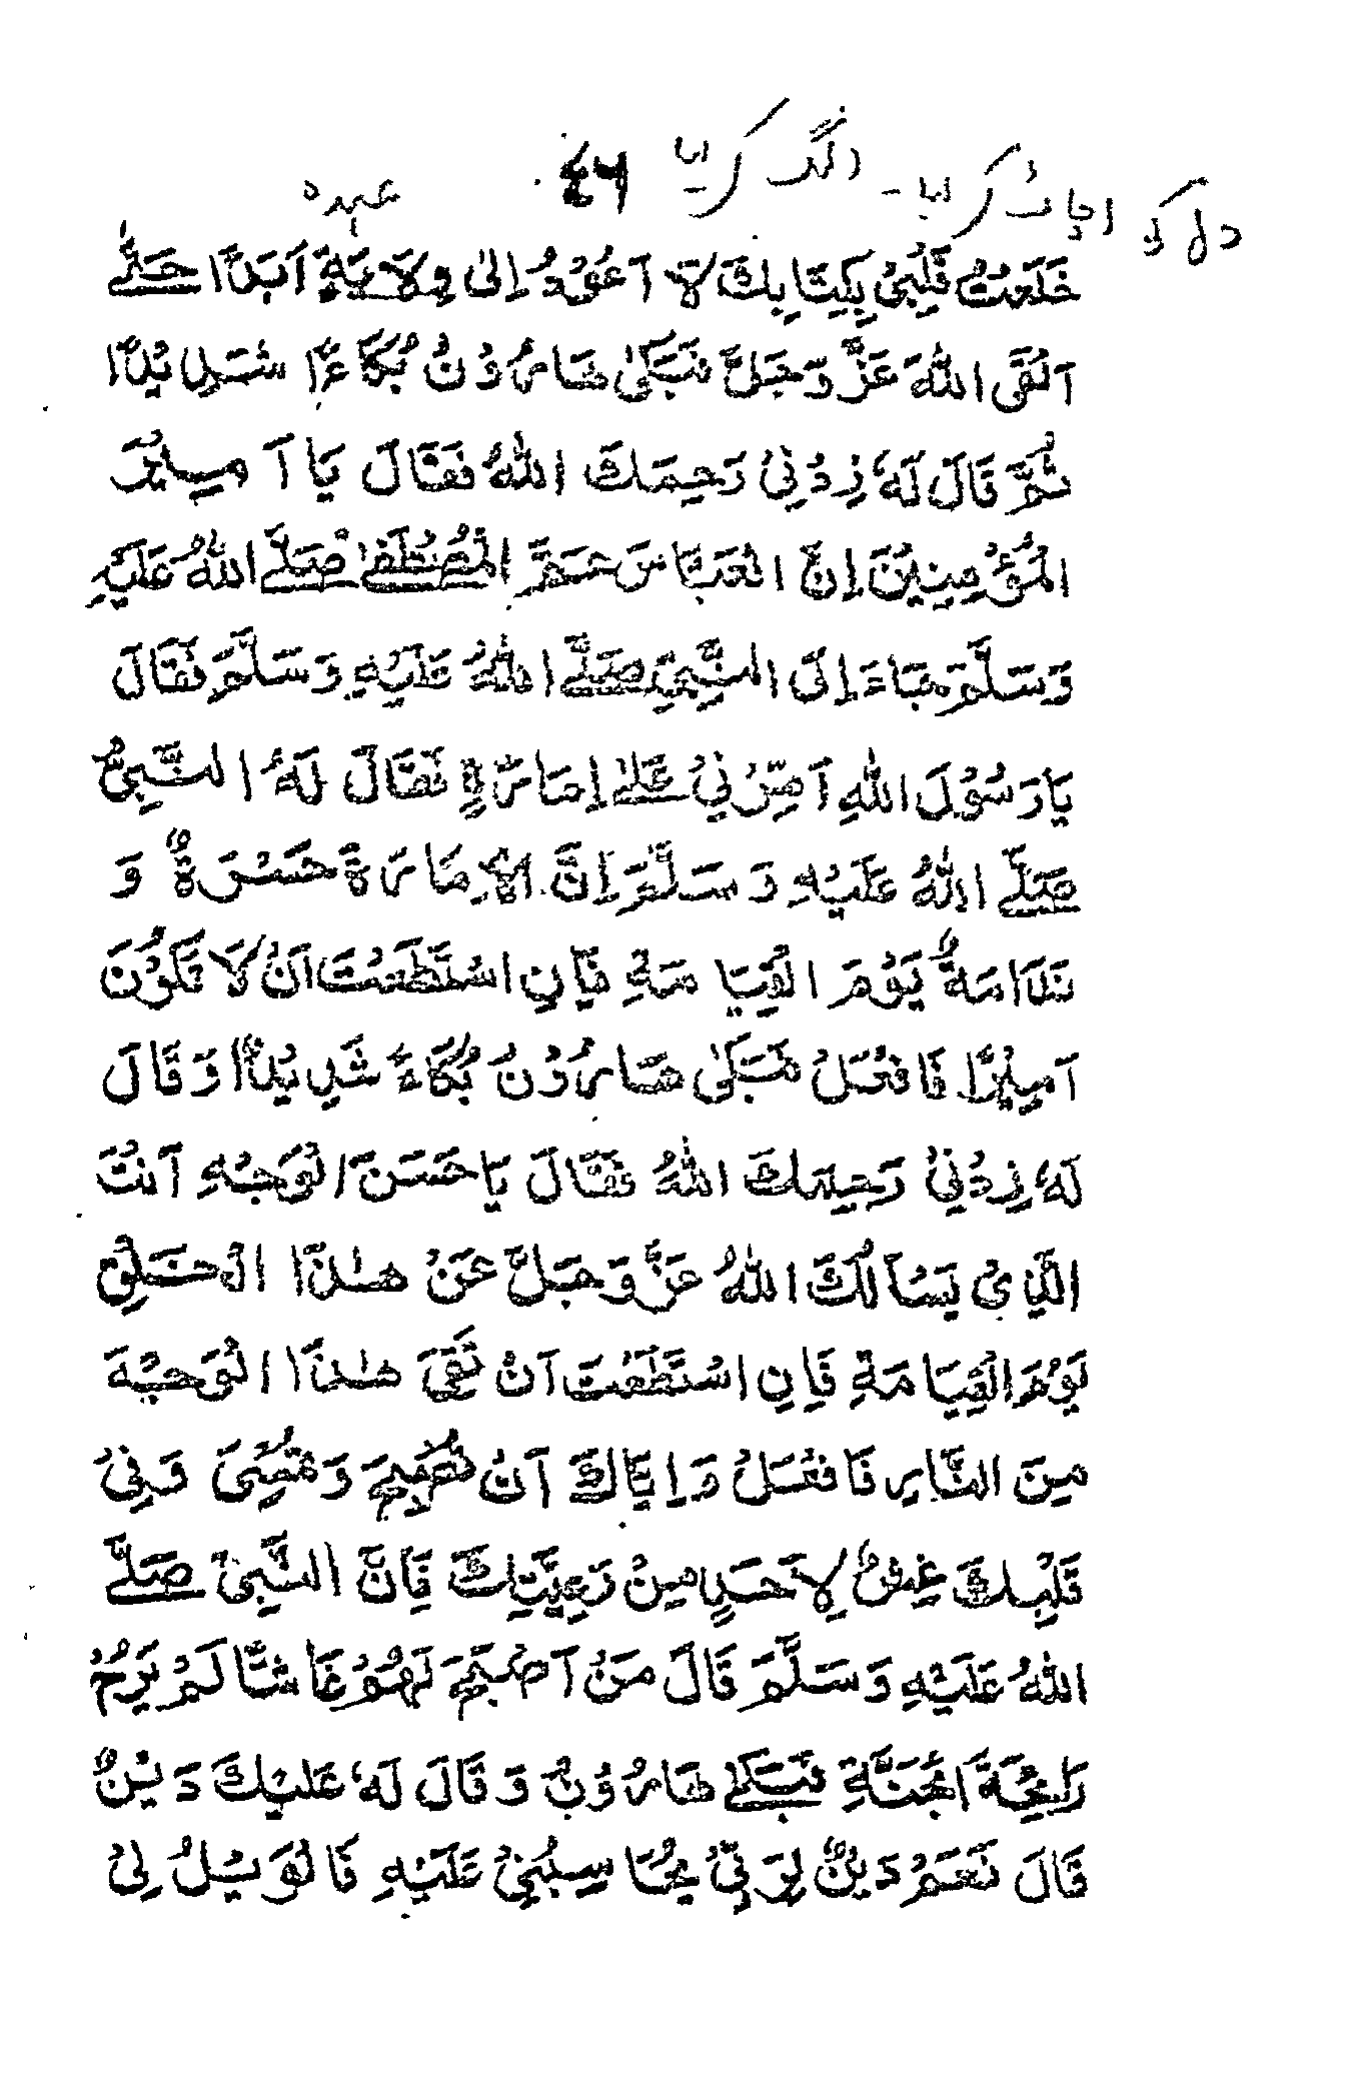 دل کو اچاٹ کر لیا - الگ کر لیا ٤٦ عہدہ
خَلَعْتُ قَلْبِيْ بِكِتَابِكَ لَا اَعُوْدُ اِلٰى وِلَايَةٍ اَبَدًا حَتّٰے
اَلْقَى اللهَ عَزَّ وَجَلَّ فَبَكٰى هَارُوْنُ بُكَاءً شَدِيْدًا
ثُمَّ قَالَ لَهٗ زِدْنِيْ رَحِمَكَ اللهُ فَقَالَ يَا اَمِيْرَ
الْمُؤْمِنِيْنَ اِنَّ الْعَبَّاسَ عَمَّ الْمُصْطَفٰے صَلَّے اللهُ عَلَيْهِ
وَسَلَّمَ جَاءَ اِلَى النَّبِيِّ صَلَّے اللهُ عَلَيْهِ وَسَلَّمَ فَقَالَ
يَا رَسُوْلَ اللهِ اَمِّرْنِيْ عَلٰے اِمَارَةٍ فَقَالَ لَهُ النَّبِيُّ
صَلَّے اللهُ عَلَيْهِ وَسَلَّمَ اِنَّ الْاِمَارَةَ حَسْرَةٌ وَ
نَدَامَةٌ يَوْمَ الْقِيَامَةِ فَاِنِ اسْتَطَعْتَ اَنْ لَا تَكُوْنَ
اَمِيْرًا فَافْعَلْ فَبَكٰى هَارُوْنُ بُكَاءً شَدِيْدًا وَقَالَ
لَهٗ زِدْنِيْ رَحِمَكَ اللهُ فَقَالَ يَا حَسَنَ الْوَجْهِ اَنْتَ
الَّذِيْ يَسْاَلُكَ اللهُ عَزَّ وَجَلَّ عَنْ هٰذَا الْخَلْقِ
يَوْمَ الْقِيَامَةِ فَاِنِ اسْتَطَعْتَ اَنْ تَقِيَ هٰذَا الْوَجْهَ
مِنَ النَّارِ فَافْعَلْ وَاِيَّاكَ اَنْ تُصْبِحَ وَتُمْسِيَ وَفِيْ
قَلْبِكَ غِشٌّ لِاَحَدٍ مِنْ رَعِيَّتِكَ فَاِنَّ النَّبِيَّ صَلَّے
اللهُ عَلَيْهِ وَسَلَّمَ قَالَ مَنْ اَصْبَحَ لَهُمْ غَاشًّا لَمْ يَرِحْ
رَائِحَةَ الْجَنَّةِ فَبَكٰے هَارُوْنُ وَقَالَ لَهٗ عَلَيْكَ دَيْنٌ
قَالَ نَعَمْ دَيْنٌ لِرَبِّيْ يُحَاسِبُنِيْ عَلَيْهِ فَالْوَيْلُ لِيْ